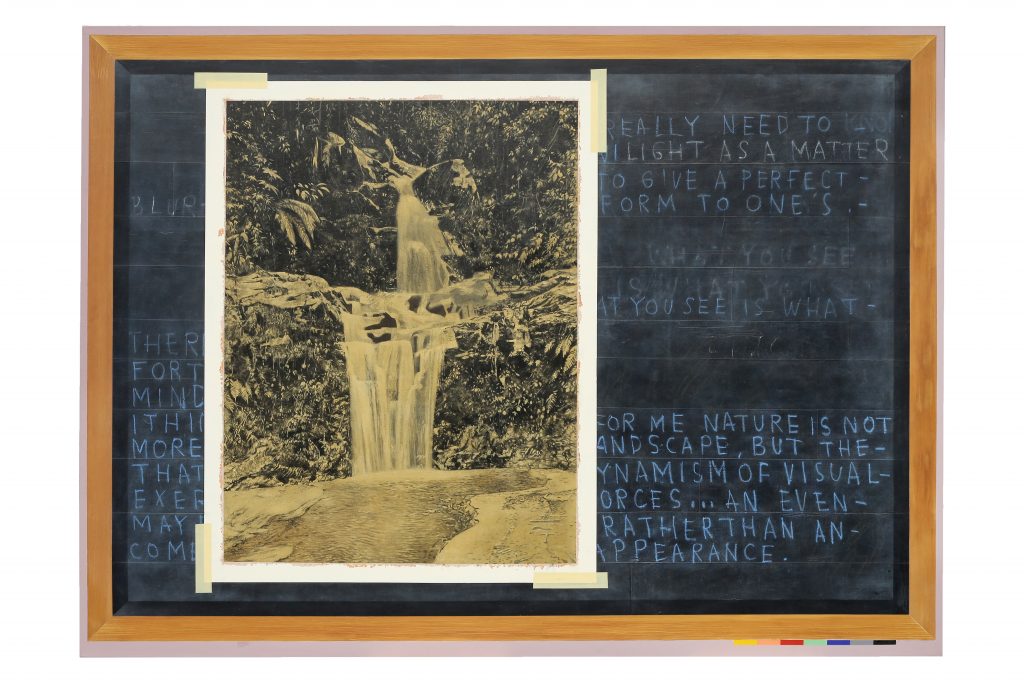 BLUR
THER
FORT
MIND
ITHI
MORE
THAT
EXER
MAY
COME
REALLY NEED TO
WILIGHT AS A MATTER
TO GIVE A PERFECT -
FORM TO ONE'S .-
WHAT YOU SEE
IS WHAT
AT YOU SEE IS WHAT -
FOR ME NATURE IS NOT
ANDSCAPE, BUT THE-
YNAMISM OF VISUAL-
ORCES... AN EVEN-
RATHER THAN AN-
APPEARANCE.